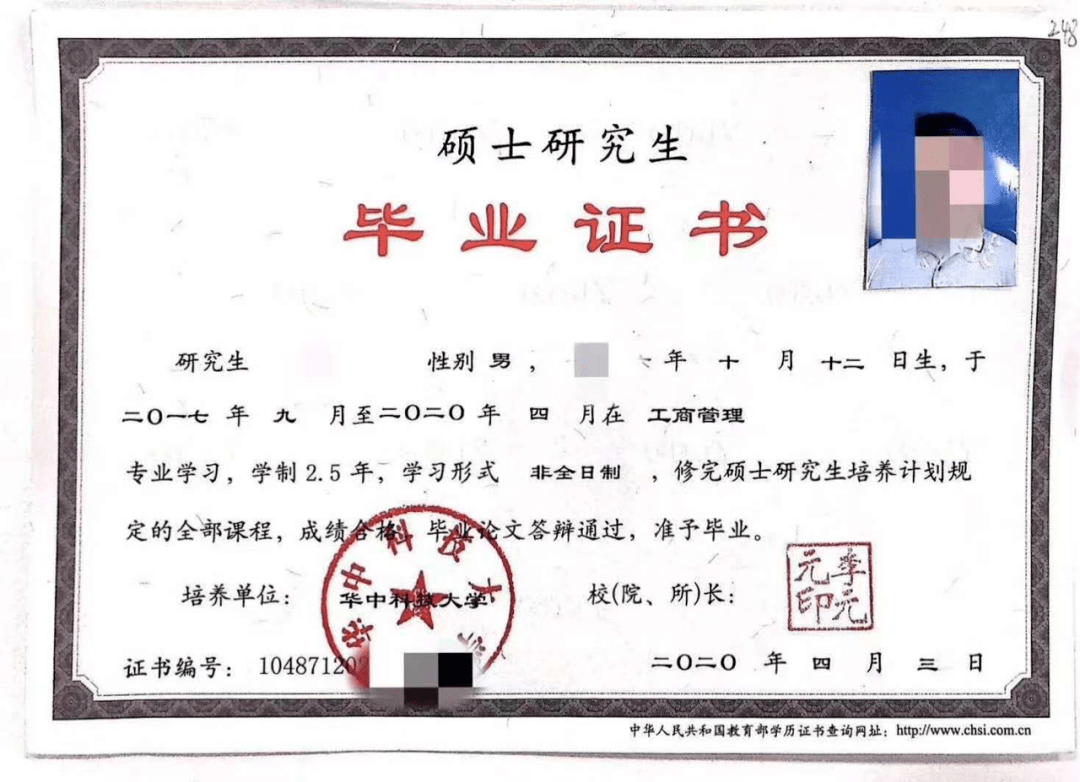 248
硕士研究生
毕业证书
研究生 性别 男, 年 十 月 十二 日生,于
二〇一七 年 九 月至二〇二〇 年 四 月在 工商管理
专业学习,学制2.5年,学习形式 非全日制 ,修完硕士研究生培养计划规
定的全部课程,成绩合格,毕业论文答辩通过,准予毕业。
华中科技大学
培养单位: 华中科技大学 校(院、所)长: 李元元印
证书编号: 10487120 二〇二〇 年 四 月 三 日
中华人民共和国教育部学历证书查询网址: http://www.chsi.com.cn